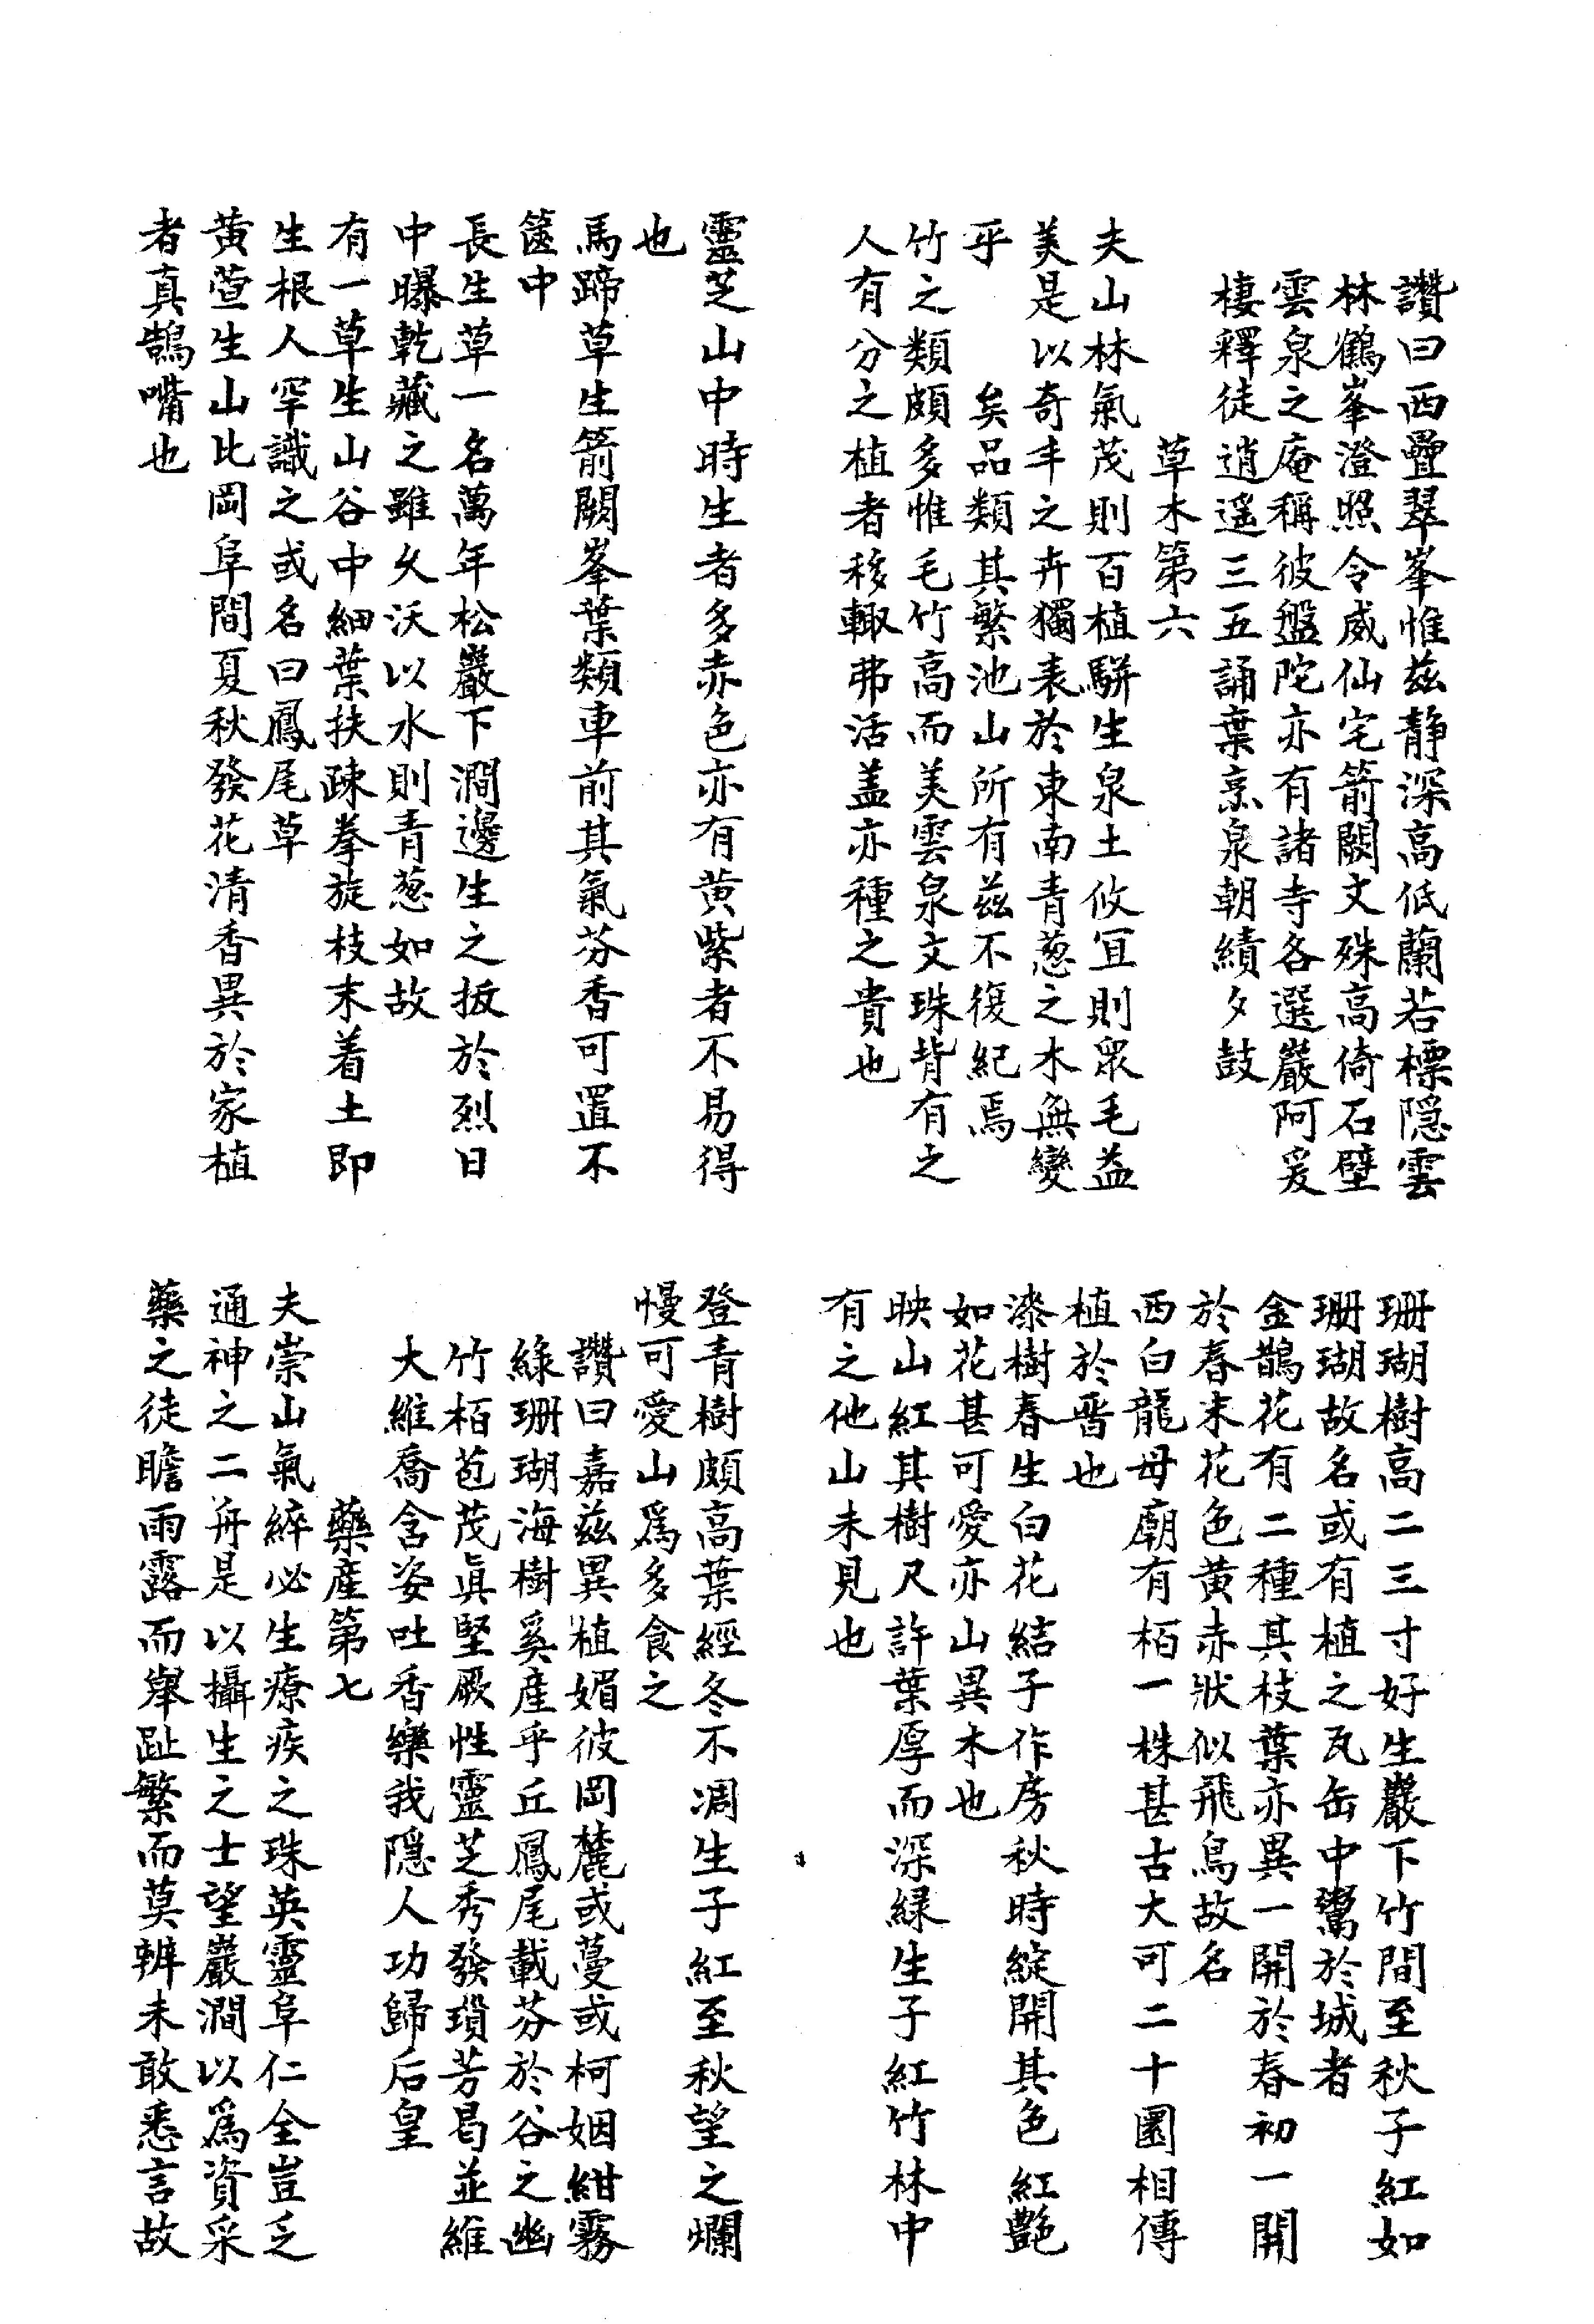 讚曰西疊翠峯惟茲靜深高低蘭若標隱雲
林鶴峯澄照令威仙宅箭闕文殊高倚石壁
雲泉之庵稱彼盤陀亦有諸寺各選巖阿爰
棲釋徒逍遥三五誦葉烹泉朝績夕鼓
草木第六
夫山林氣茂則百植駢生泉土攸宜則眾毛益
美是以奇丰之卉獨表於東南青葱之木無變
乎　　矣品類其繁池山所有茲不復紀焉
竹之類頗多惟毛竹高而美雲泉文珠背有之
人有分之植者移輙弗活盖亦種之貴也
靈芝山中時生者多赤色亦有黄紫者不易得
也
馬蹄草生箭闕峯葉類車前其氣芬香可置不
篋中
長生草一名萬年松巖下澗邊生之扳於烈日
中曝乾藏之雖乆沃以水則青葱如故
有一草生山谷中細葉扶疎拳旋枝末着土即
生根人罕識之或名曰鳳尾草
黄萱生山比岡阜間夏秋發花清香異於家植
者真鵠嘴也
珊瑚樹高二三寸好生巖下竹間至秋子紅如
珊瑚故名或有植之瓦缶中鬻於城者
金鵲花有二種其枝葉亦異一開於春初一開
於春末花色黄赤狀似飛鳥故名
西白龍母廟有栢一株甚古大可二十圍相傳
植於晋也
漆樹春生白花結子作房秋時綻開其色紅艷
如花甚可愛亦山異木也
映山紅其樹尺許葉厚而深緑生子紅竹林中
有之他山未見也
登青樹頗高葉經冬不凋生子紅至秋望之爛
幔可愛山爲多食之
讚曰嘉茲異植媚彼岡麓或蔓或柯姻紺霧
綠珊瑚海樹奚産乎丘鳳尾載芬於谷之幽
竹栢苞茂眞堅厥性靈芝秀發瑣芳曷並維
大維喬含姿吐香樂我隱人功歸后皇
藥産第七
夫崇山氣綷必生療疾之珠英靈阜仁全豈乏
通神之二舟是以攝生之士望巖澗以爲資采
藥之徒瞻雨露而舉趾繁而莫辨未敢悉言故